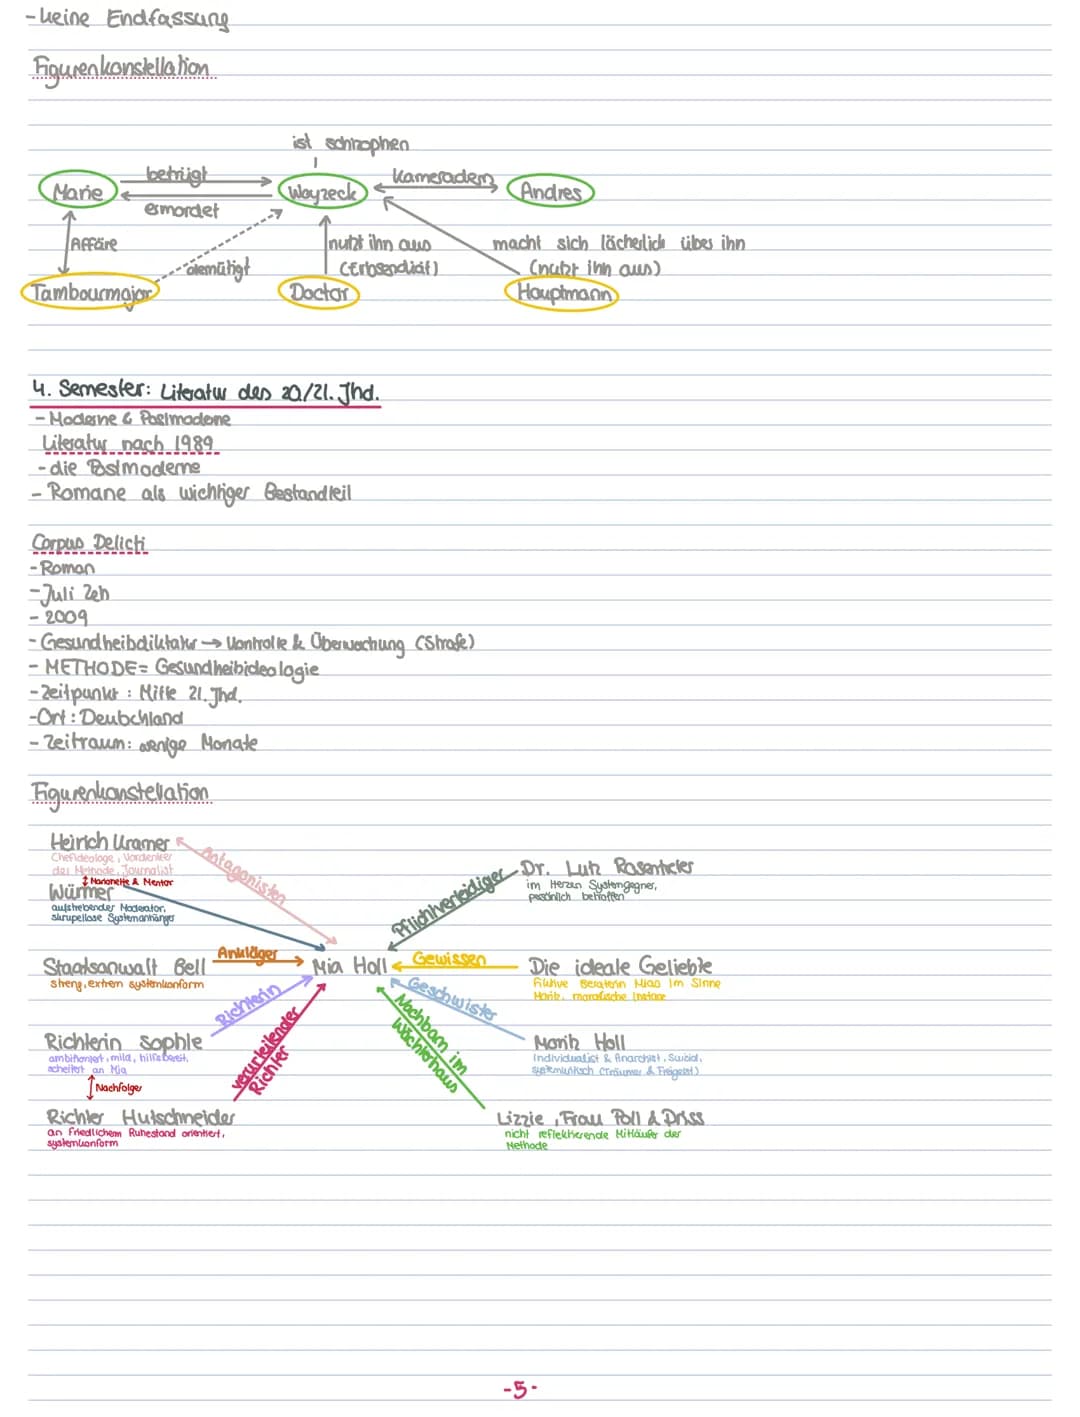 - keine Endfassung
Figurenkonstellation
ist schizophen
betrügt
Kameraden
Marie
Woyzeck
Andres
ermordet
Affäre
demütigt
nutzt ihn aus
(Erbsendiät)
macht sich lächerlich über ihn
(nutzt ihn aus)
Tambourmajor
Doctor
Hauptmann
4. Semester: Literatur des 20/21. Jhd.
- Moderne & Postmoderne
Literatur nach 1989
- die Postmoderne
- Romane als wichtiger Bestandteil
Corpus Delicti
- Roman
- Juli Zeh
- 2009
- Gesundheitsdiktatur → Kontrolle & Überwachung (Strafe)
- METHODE = Gesundheitsideologie
- Zeitpunkt: Mitte 21. Jhd.
- Ort: Deutschland
- Zeitraum: wenige Monate
Figurenkonstellation
Heirich Kramer
Chefideologe, Vordenker
der Methode, Journalist
Marionette & Mentor
Würmer
aufstrebender Moderator,
skrupellose Systemanhänger
Antagonisten
Pflichtverteidiger
Dr. Lutz Rosentreter
im Herzen Systemgegner,
persönlich betroffen
Staatsanwalt Bell
streng, extrem systemkonform
Ankläger
Mia Holl
Gewissen
Die ideale Geliebte
fiktive Beraterin Mias im Sinne
Moritz, moralische Instanz
Richterin
Geschwister
Richterin Sophie
ambitioniert, mild, hilfsbereit,
scheitert an Mia
Nachfolger
verurteilender
Richter
Nachbarn im
Wächterhaus
Moritz Holl
Individualist & Anarchist, Suizid,
systemkritisch (Träumer & Freigeist)
Richter Hutschneider
an friedlichem Ruhestand orientiert,
systemkonform
Lizzie, Frau Poll & Driss
nicht reflektierende Mitläufer der
Methode
-5-